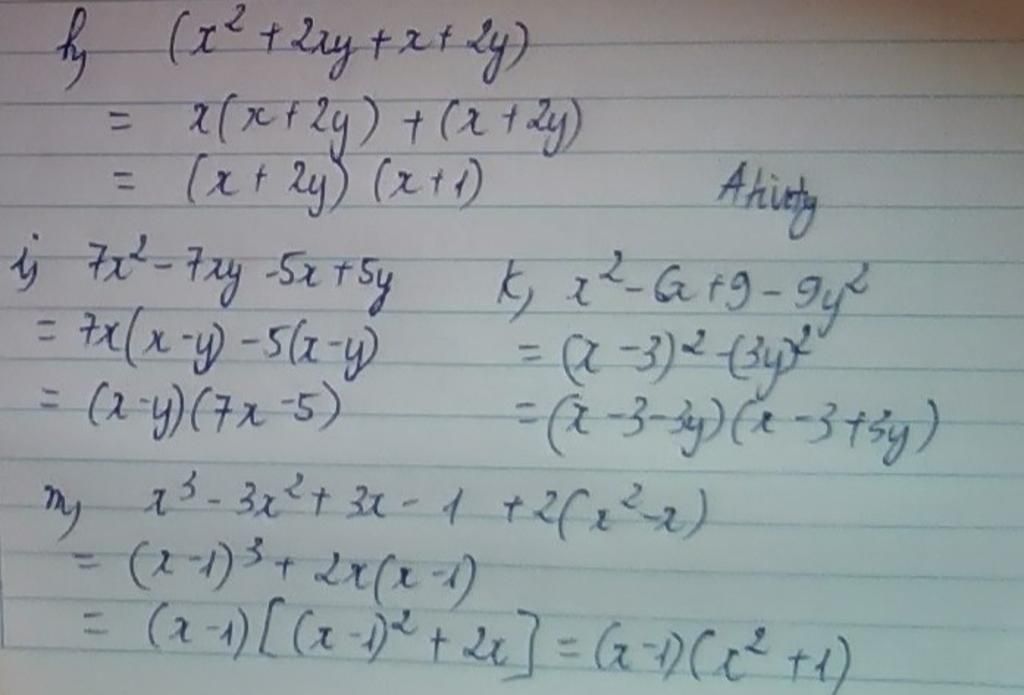 h, (x² + 2xy + x + 2y)
= x(x + 2y) + (x + 2y)
= (x + 2y) (x + 1)
i, 7x² - 7xy - 5x + 5y
= 7x(x - y) - 5(x - y)
= (x - y)(7x - 5)
k, x² - 6x + 9 - 9y²
= (x - 3)² - (3y)²
= (x - 3 - 3y)(x - 3 + 3y)
m, x³ - 3x² + 3x - 1 + 2(x² - x)
= (x - 1)³ + 2x(x - 1)
= (x - 1)[(x - 1)² + 2x] = (x - 1)(x² + 1)